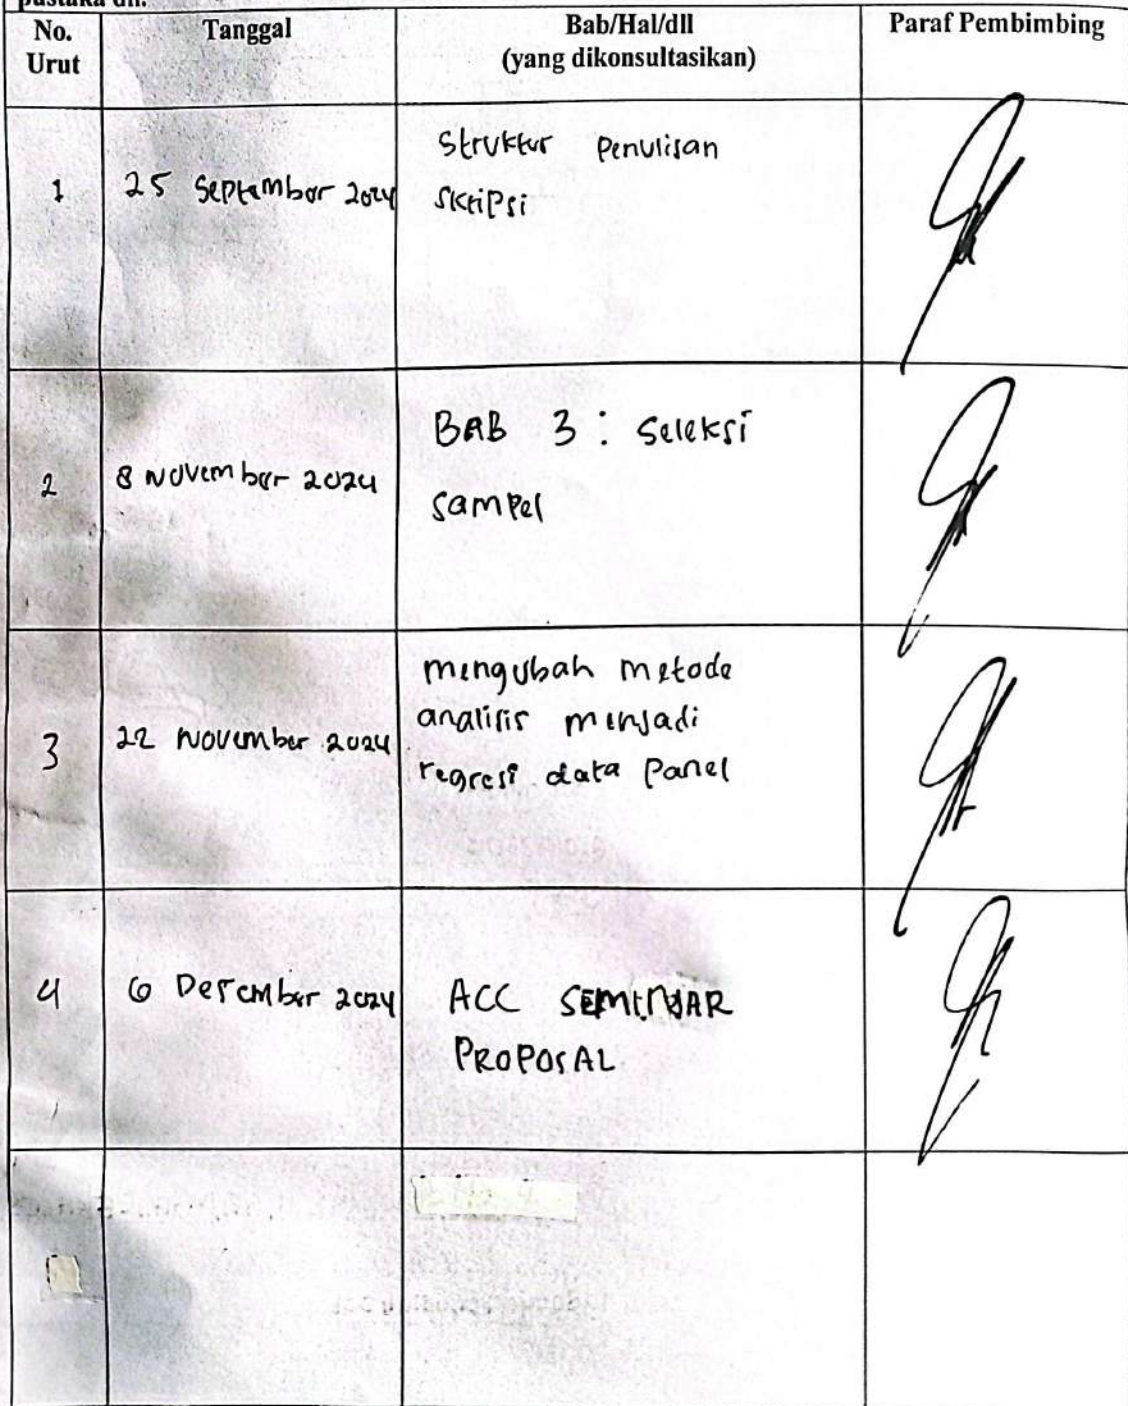 pustaka dll.
No. Urut
Tanggal
Bab/Hal/dll
(yang dikonsultasikan)
Paraf Pembimbing
1
25 September 2024
Struktur Penulisan
Skripsi
2
8 November 2024
BAB 3 : Seleksi
Sampel
3
22 November 2024
mengubah metode
analisis menjadi
regresi data Panel
4
6 Desember 2024
ACC SEMINAR
PROPOSAL